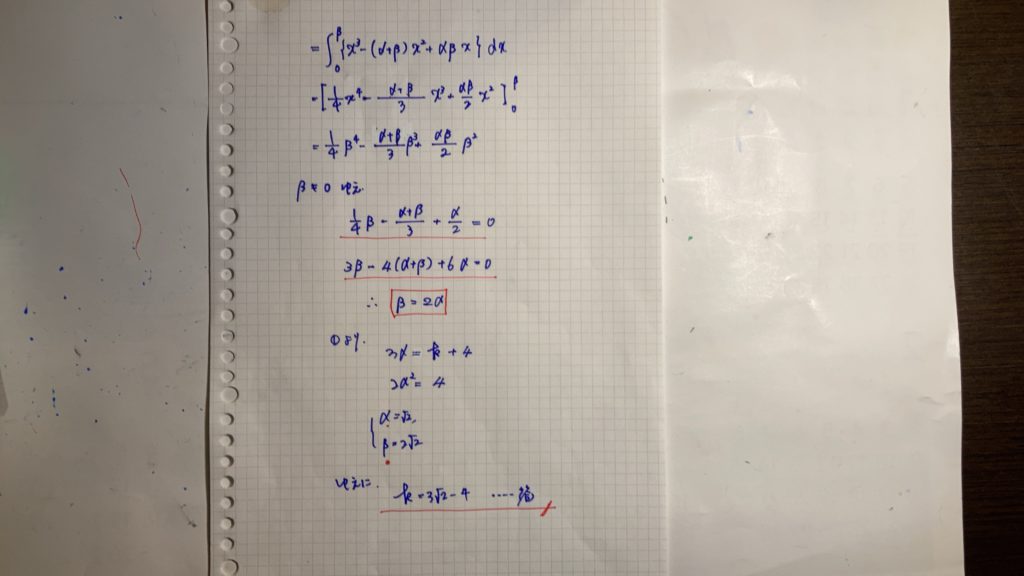 = ∫₀^β {x³ - (α+β)x² + αβx} dx
= [1/4 x⁴ - (α+β)/3 x³ + αβ/2 x²]₀^β
= 1/4 β⁴ - (α+β)/3 β³ + αβ/2 β²
β≠0 ゆえ
1/4 β - (α+β)/3 + α/2 = 0
3β - 4(α+β) + 6α = 0
∴ β = 2α
①より.
3α = k + 4
2α² = 4
{ α = √2,
β = 2√2
ゆえに.
k = 3√2 - 4 ……答